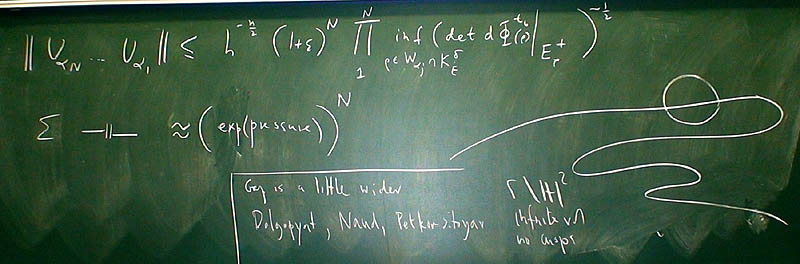 ‖ U_{α_N} ... U_{α_1} ‖ ≤ h^{-n/2} (1+ε)^N ∏_1^N inf_{ρ∈W_{α_j}∩K_E^δ} (det dΦ^{t_0}(ρ)|_{E_ρ^+})^{-1/2}
Σ —||— ≈ (exp(pressure))^N
is a little wider
Dolgopyat, Naud, Petkov-Stoyanov
Γ\ℍ²
infinite vol
no cusps